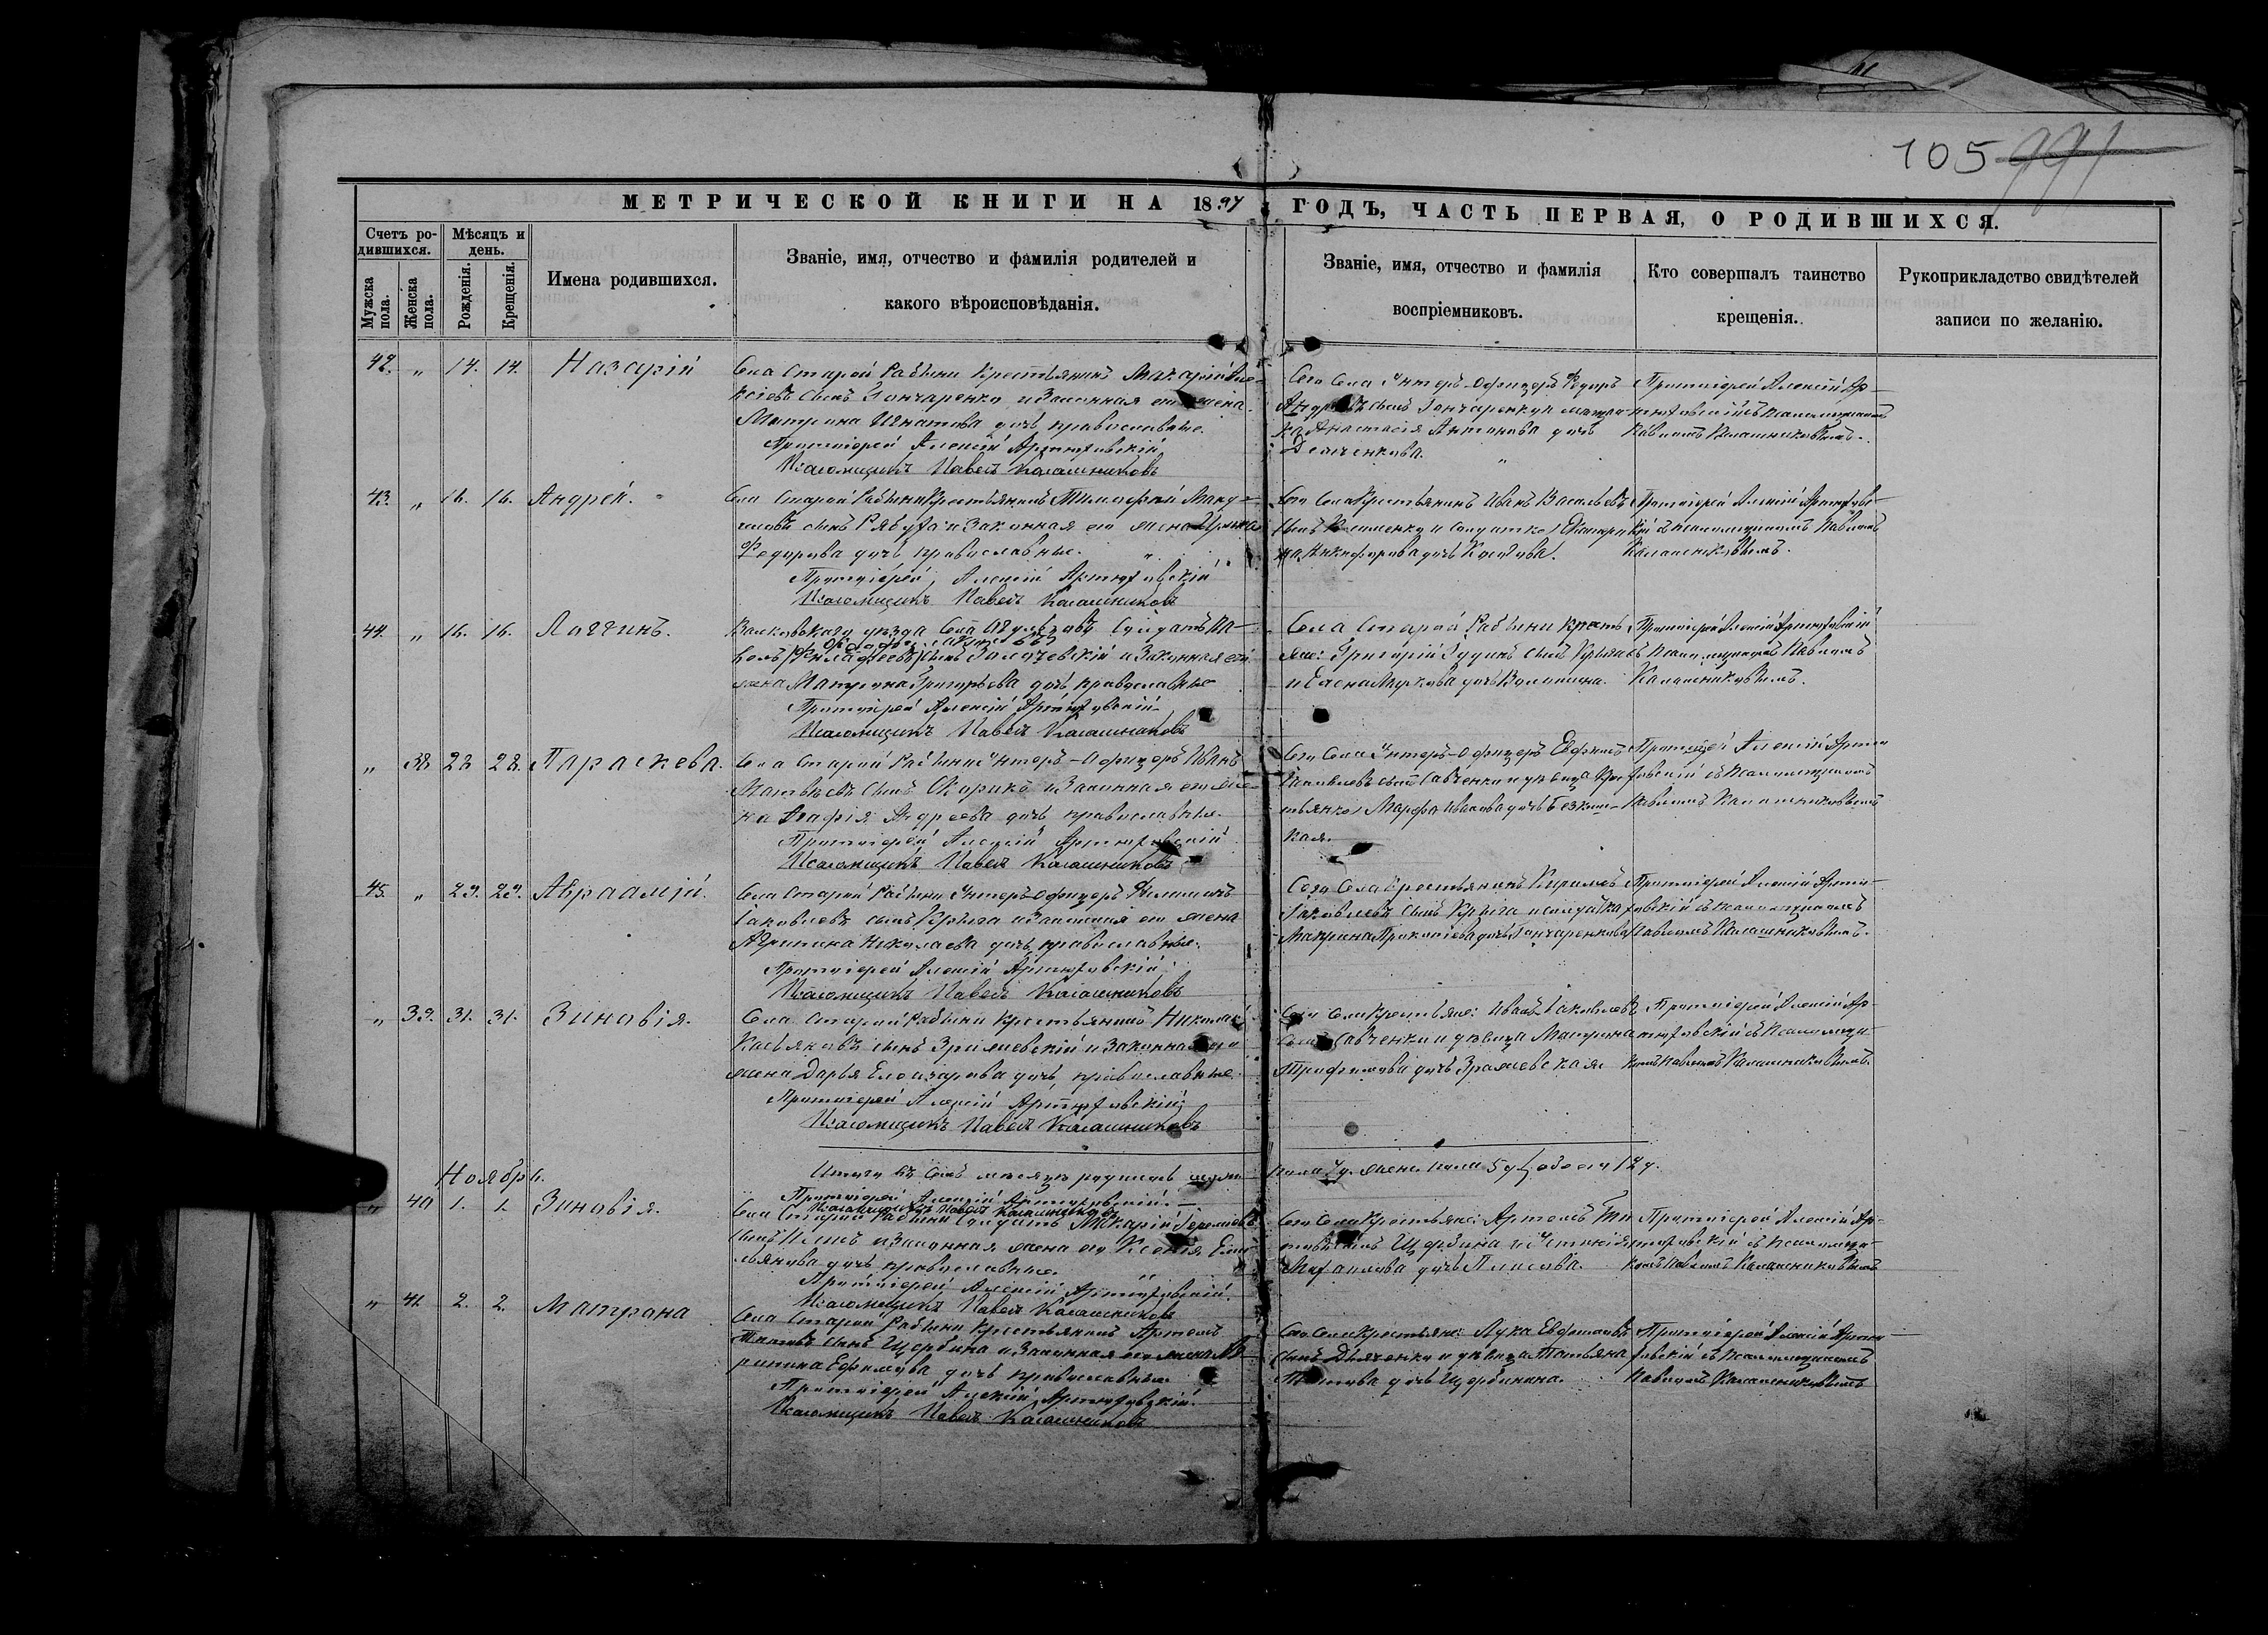 105 991
МЕТРИЧЕСКОЙ КНИГИ НА 1897 ГОДЪ, ЧАСТЬ ПЕРВАЯ, О РОДИВШИХСЯ.
Счетъ ро-
дившихся.
Мѣсяцъ и
день.
Мужска
пола.
Женска
пола.
Рожденія.
Крещенія.
Имена родившихся.
Званіе, имя, отчество и фамилія родителей и
какого вѣроисповѣданія.
Званіе, имя, отчество и фамилія
воспріемниковъ.
Кто совершалъ таинство
крещенія.
Рукоприкладство свидѣтелей
записи по желанію.
42. " 14. 14. Назарій
Села Старой Рабыни Крестьянинъ
сынъ Гончаренко и Законная его жена
Матрона Игнатова дочь православные.
Протоіерей Алексій Артюховскій
Псаломщикъ Павелъ Калашниковъ
Сего Села Унтеръ-Офицеръ Федоръ
Андреевъ сынъ Гончаренко и
Анастасія Антонова дочь
Протоіерей Алексій Ар-
тюховскій съ псаломщикомъ
Павломъ Калашниковымъ.
43. " 16. 16. Андрей.
Села Старой Рабыни Крестьянинъ Тимофей
сынъ Рябуха и Законная его жена
Федорова дочь православные.
Протоіерей Алексій Артюховскій
Псаломщикъ Павелъ Калашниковъ
Сего Села Крестьянинъ Иванъ Васильевъ
сынъ и солдатка Екатери-
на Никифорова дочь
Протоіерей Алексій Артюхов-
скій съ псаломщикомъ Павломъ
Калашниковымъ.
44. " 16. 16. Логгинъ.
Валковскаго уѣзда Села Солдатъ
сынъ Золочевскій и Законная его
жена Матрона Григорьева дочь православные
Протоіерей Алексій Артюховскій
Псаломщикъ Павелъ Калашниковъ
Села Старой Рабыни крест
яне: Григорій сынъ
и Елена Маркова дочь
Протоіерей Алексій Артюховскій
съ псаломщикомъ Павломъ
Калашниковымъ.
" 38. 28. 28. Параскева.
Села Старой Рабыни Унтеръ-Офицеръ Иванъ
Матвѣевъ сынъ Скорикъ и Законная его же-
на Агафія Андреева дочь православные.
Протоіерей Алексій Артюховскій
Псаломщикъ Павелъ Калашниковъ
Сего Села Унтеръ-Офицеръ Евфимъ
Яковлевъ сынъ Савченко и дѣвица Крес
тьянка Марфа Иванова дочь
кая.
Протоіерей Алексій Артю
ховскій съ псаломщикомъ
Павломъ Калашниковымъ
45. " 29. 29. Авраамій.
Села Старой Рабыни Унтеръ-Офицеръ Филиппъ
Іаковлевъ сынъ Крыга и Законная его жена
Агрипина Николаева дочь православные.
Протоіерей Алексій Артюховскій
Псаломщикъ Павелъ Калашниковъ
Сего Села Крестьянинъ Кирилъ
Іаковлевъ сынъ Крыга и солдатка
Макрина Прокопіева дочь Гончаренкова
Протоіерей Алексій Артю-
ховскій съ псаломщикомъ
Павломъ Калашниковымъ.
" 39. 31. 31. Зиновія.
Села Старой Рабыни Крестьянинъ Николай
Касьяновъ сынъ и Законная его
жена Дарья Елеазарова дочь православные
Протоіерей Алексій Артюховскій
Псаломщикъ Павелъ Калашниковъ
Сего Села Крестьяне: Иванъ Іаковлевъ
сынъ Савченко и дѣвица Матрона
Трофимова дочь
Протоіерей Алексій Ар-
тюховскій съ Псаломщи-
комъ Павломъ Калашниковымъ.
Итого въ семъ мѣсяцѣ родилось мужс. пола 7 д. женс. пола 5 д. обоего 12 д.
Протоіерей Алексій Артюховскій.
Псаломщикъ Павелъ Калашниковъ
Ноябрь.
" 40 1. 1. Зиновія.
Села Старой Рабыни Солдатъ Макарій
сынъ и Законная жена его Ксенія Еме-
льянова дочь православные.
Протоіерей Алексій Артюховскій.
Псаломщикъ Павелъ Калашниковъ
Сего Села Крестьяне: Артемъ Ти
товъ сынъ Щербина и Устинія
Михаилова дочь
Протоіерей Алексій Ар-
тюховскій съ псаломщи-
комъ Павломъ Калашниковымъ
" 41. 2. 2. Матрона
Села Старой Рабыни Крестьянинъ Артемъ
Титовъ сынъ Щербина и Законная его жена
Ефимова дочь православные
Протоіерей Алексій Артюховскій.
Псаломщикъ Павелъ Калашниковъ
Сего Села Крестьяне: Лука Евфимовъ
сынъ Дьяченко и дѣвица Татьяна
Титова дочь Щербинина.
Протоіерей Алексій Артю-
ховскій съ псаломщикомъ
Павломъ Калашниковымъ